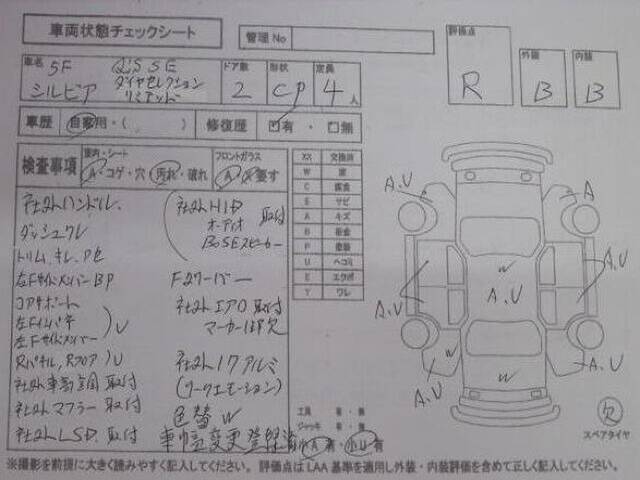 車両状態チェックシート
管理No
評価点
R
外装
B
内装
B
車名
5F
Q'S SE
シルビア
ダイヤセレクション
リミテッド
ドア数
2
形状
CP
定員
4人
車歴
自家用・( )
修復歴
有・無
検査事項
室内・シート
A・コゲ・穴・汚れ・破れ
フロントガラス
A・要す
社外ハンドル
ダッシュクレ
トリム、キレ、アセ
左FサイドメンバーBP
コアサポート
左Fインパネ
左Fサイドメンバー
) U
Rパネル, Rフロア) U
社外車高調 取付
社外マフラー取付
社外LSD. 取付
社外HID
オーディオ
BOSEスピーカー
取付
Fタワーバー
社外エアロ取付
マーカーLF欠
社外17アルミ
(ワークエモーション)
色替W
車幅変更登録済
小A有・小U有
XX 交換済
W 波
C 腐食
S サビ
A キズ
B 板金
P 塗装
U ヘコミ
E エクボ
Y ワレ
工具 有・無
ジャッキ 有・無
A.U
A
A.U
W
A.U
A.U
A.U
W
A.U
欠
スペアタイヤ
※撮影を前提に大きく読みやすく記入してください。評価点はLAA基準を適用し外装・内装評価を含めて正しく記入してください。